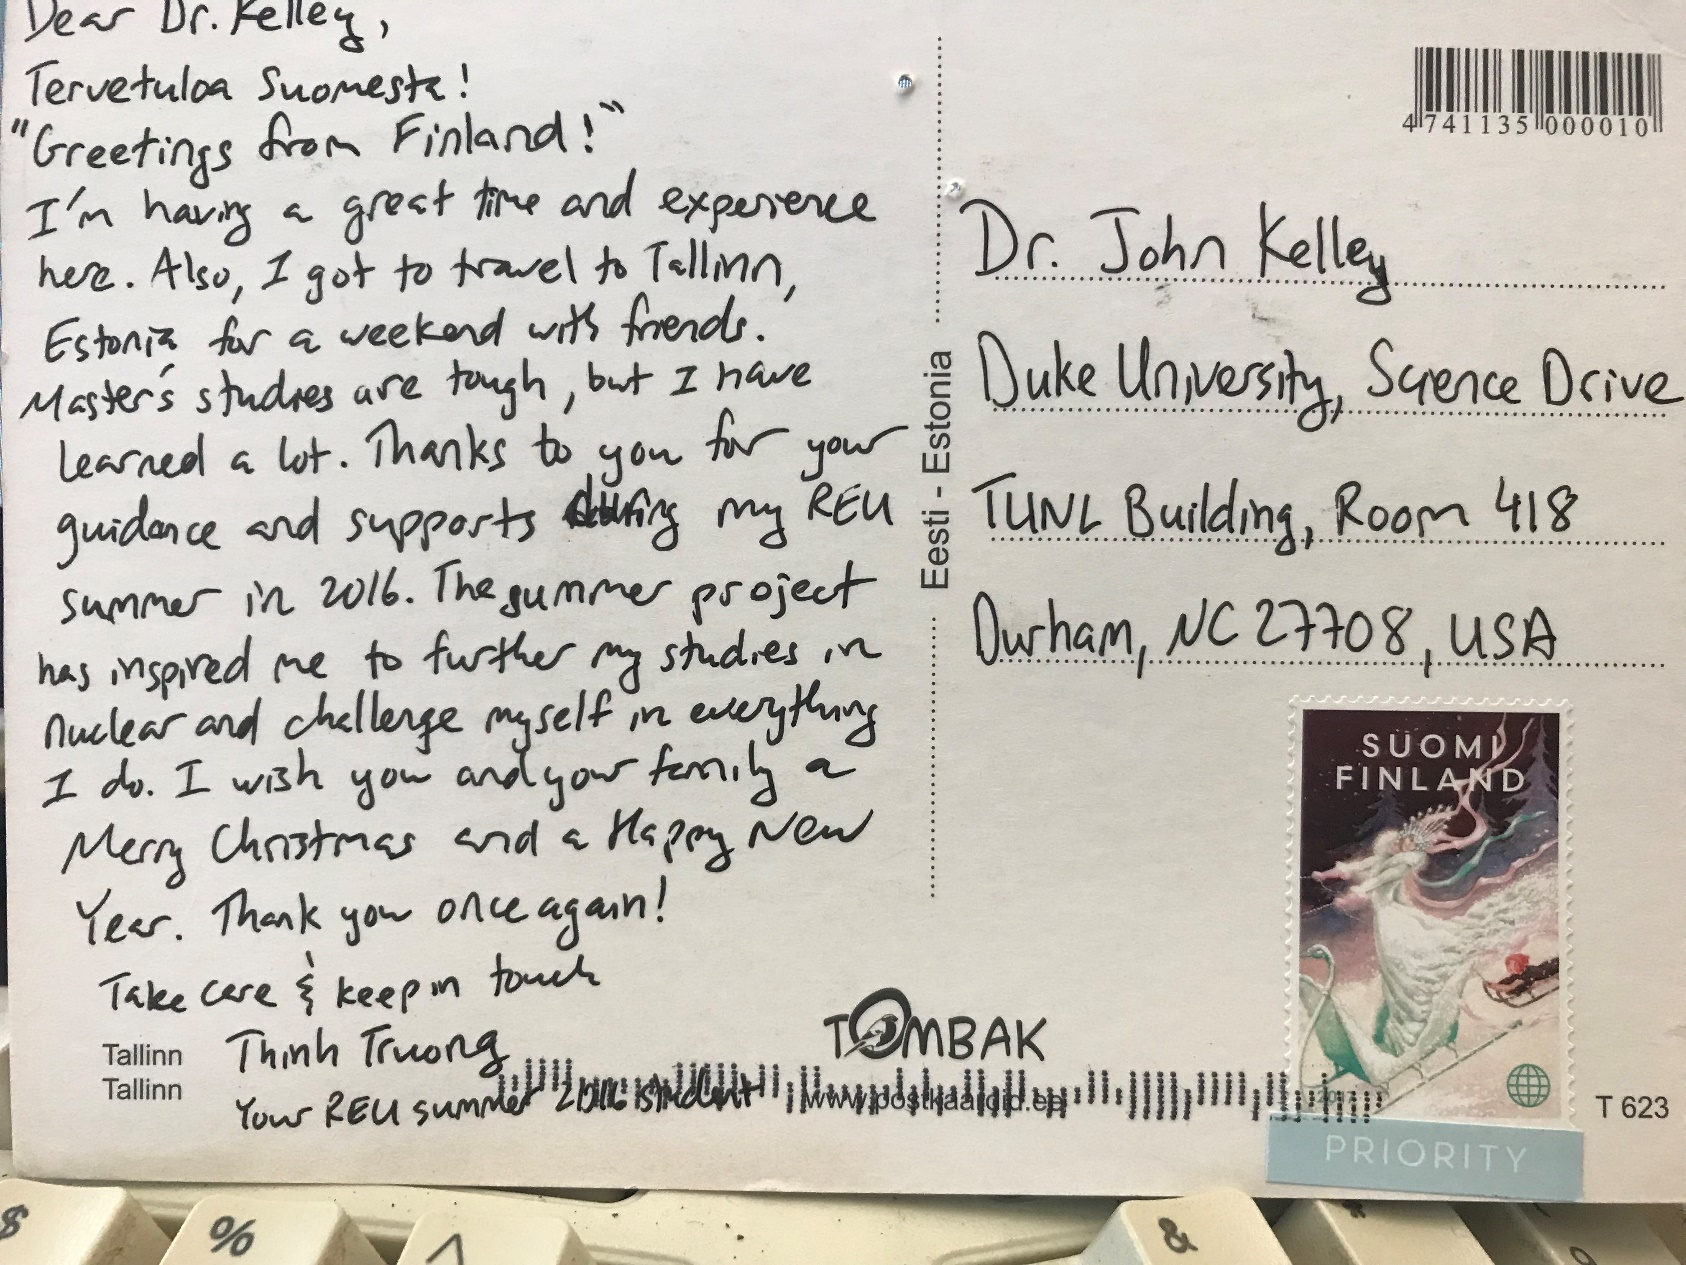 Dear Dr. Kelley,
Tervetuloa Suomesta!
"Greetings from Finland!"
I'm having a great time and experience
here. Also, I got to travel to Tallinn,
Estonia for a weekend with friends.
Master's studies are tough, but I have
learned a lot. Thanks to you for your
guidance and supports during my REU
summer in 2016. The summer project
has inspired me to further my studies in
nuclear and challenge myself in everything
I do. I wish you and your family a
Merry Christmas and a Happy New
Year. Thank you once again!
Take care & keep in touch
Thinh Truong
Your REU summer 2016 student
Tallinn
Tallinn
Eesti - Estonia
TOMBAK
www.postkaardid.ee
4 741135 000010
Dr. John Kelley
Duke University, Science Drive
TUNL Building, Room 418
Durham, NC 27708, USA
SUOMI
FINLAND
PRIORITY
T 623
$
%
^
&